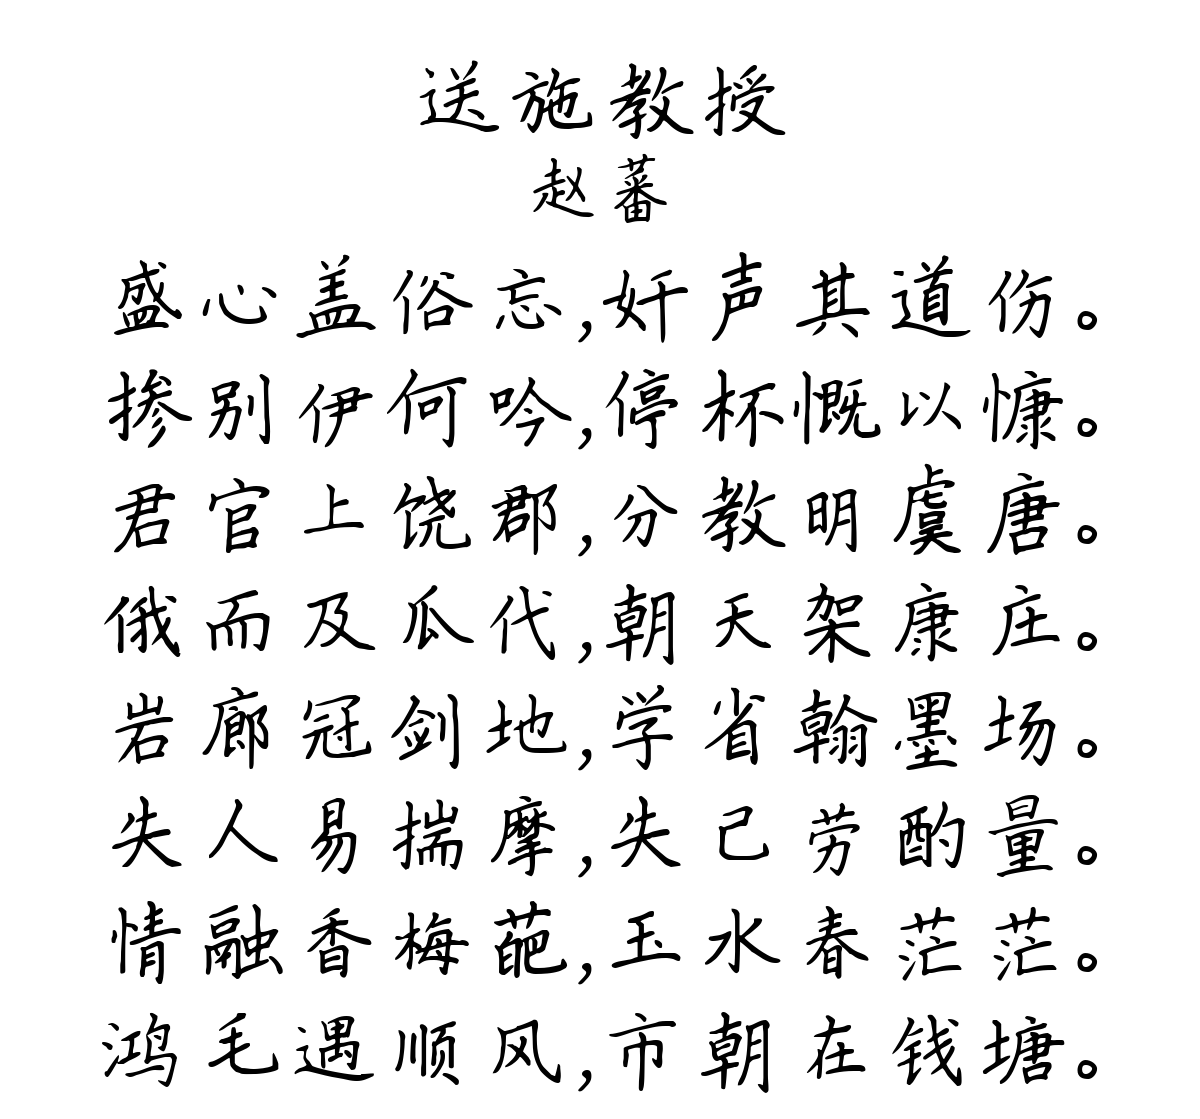 送施教授
赵蕃
盛心盖俗忘,奸声其道伤。
掺别伊何吟,停杯慨以慷。
君官上饶郡,分教明虞唐。
俄而及瓜代,朝天架康庄。
岩廊冠剑地,学省翰墨场。
失人易揣摩,失己劳酌量。
情融香梅葩,玉水春茫茫。
鸿毛遇顺风,市朝在钱塘。